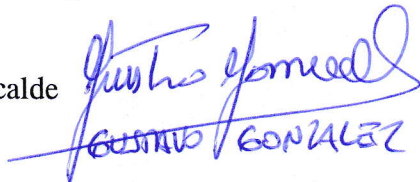 calde Gustavo Gonzalez
GUSTAVO GONZALEZ